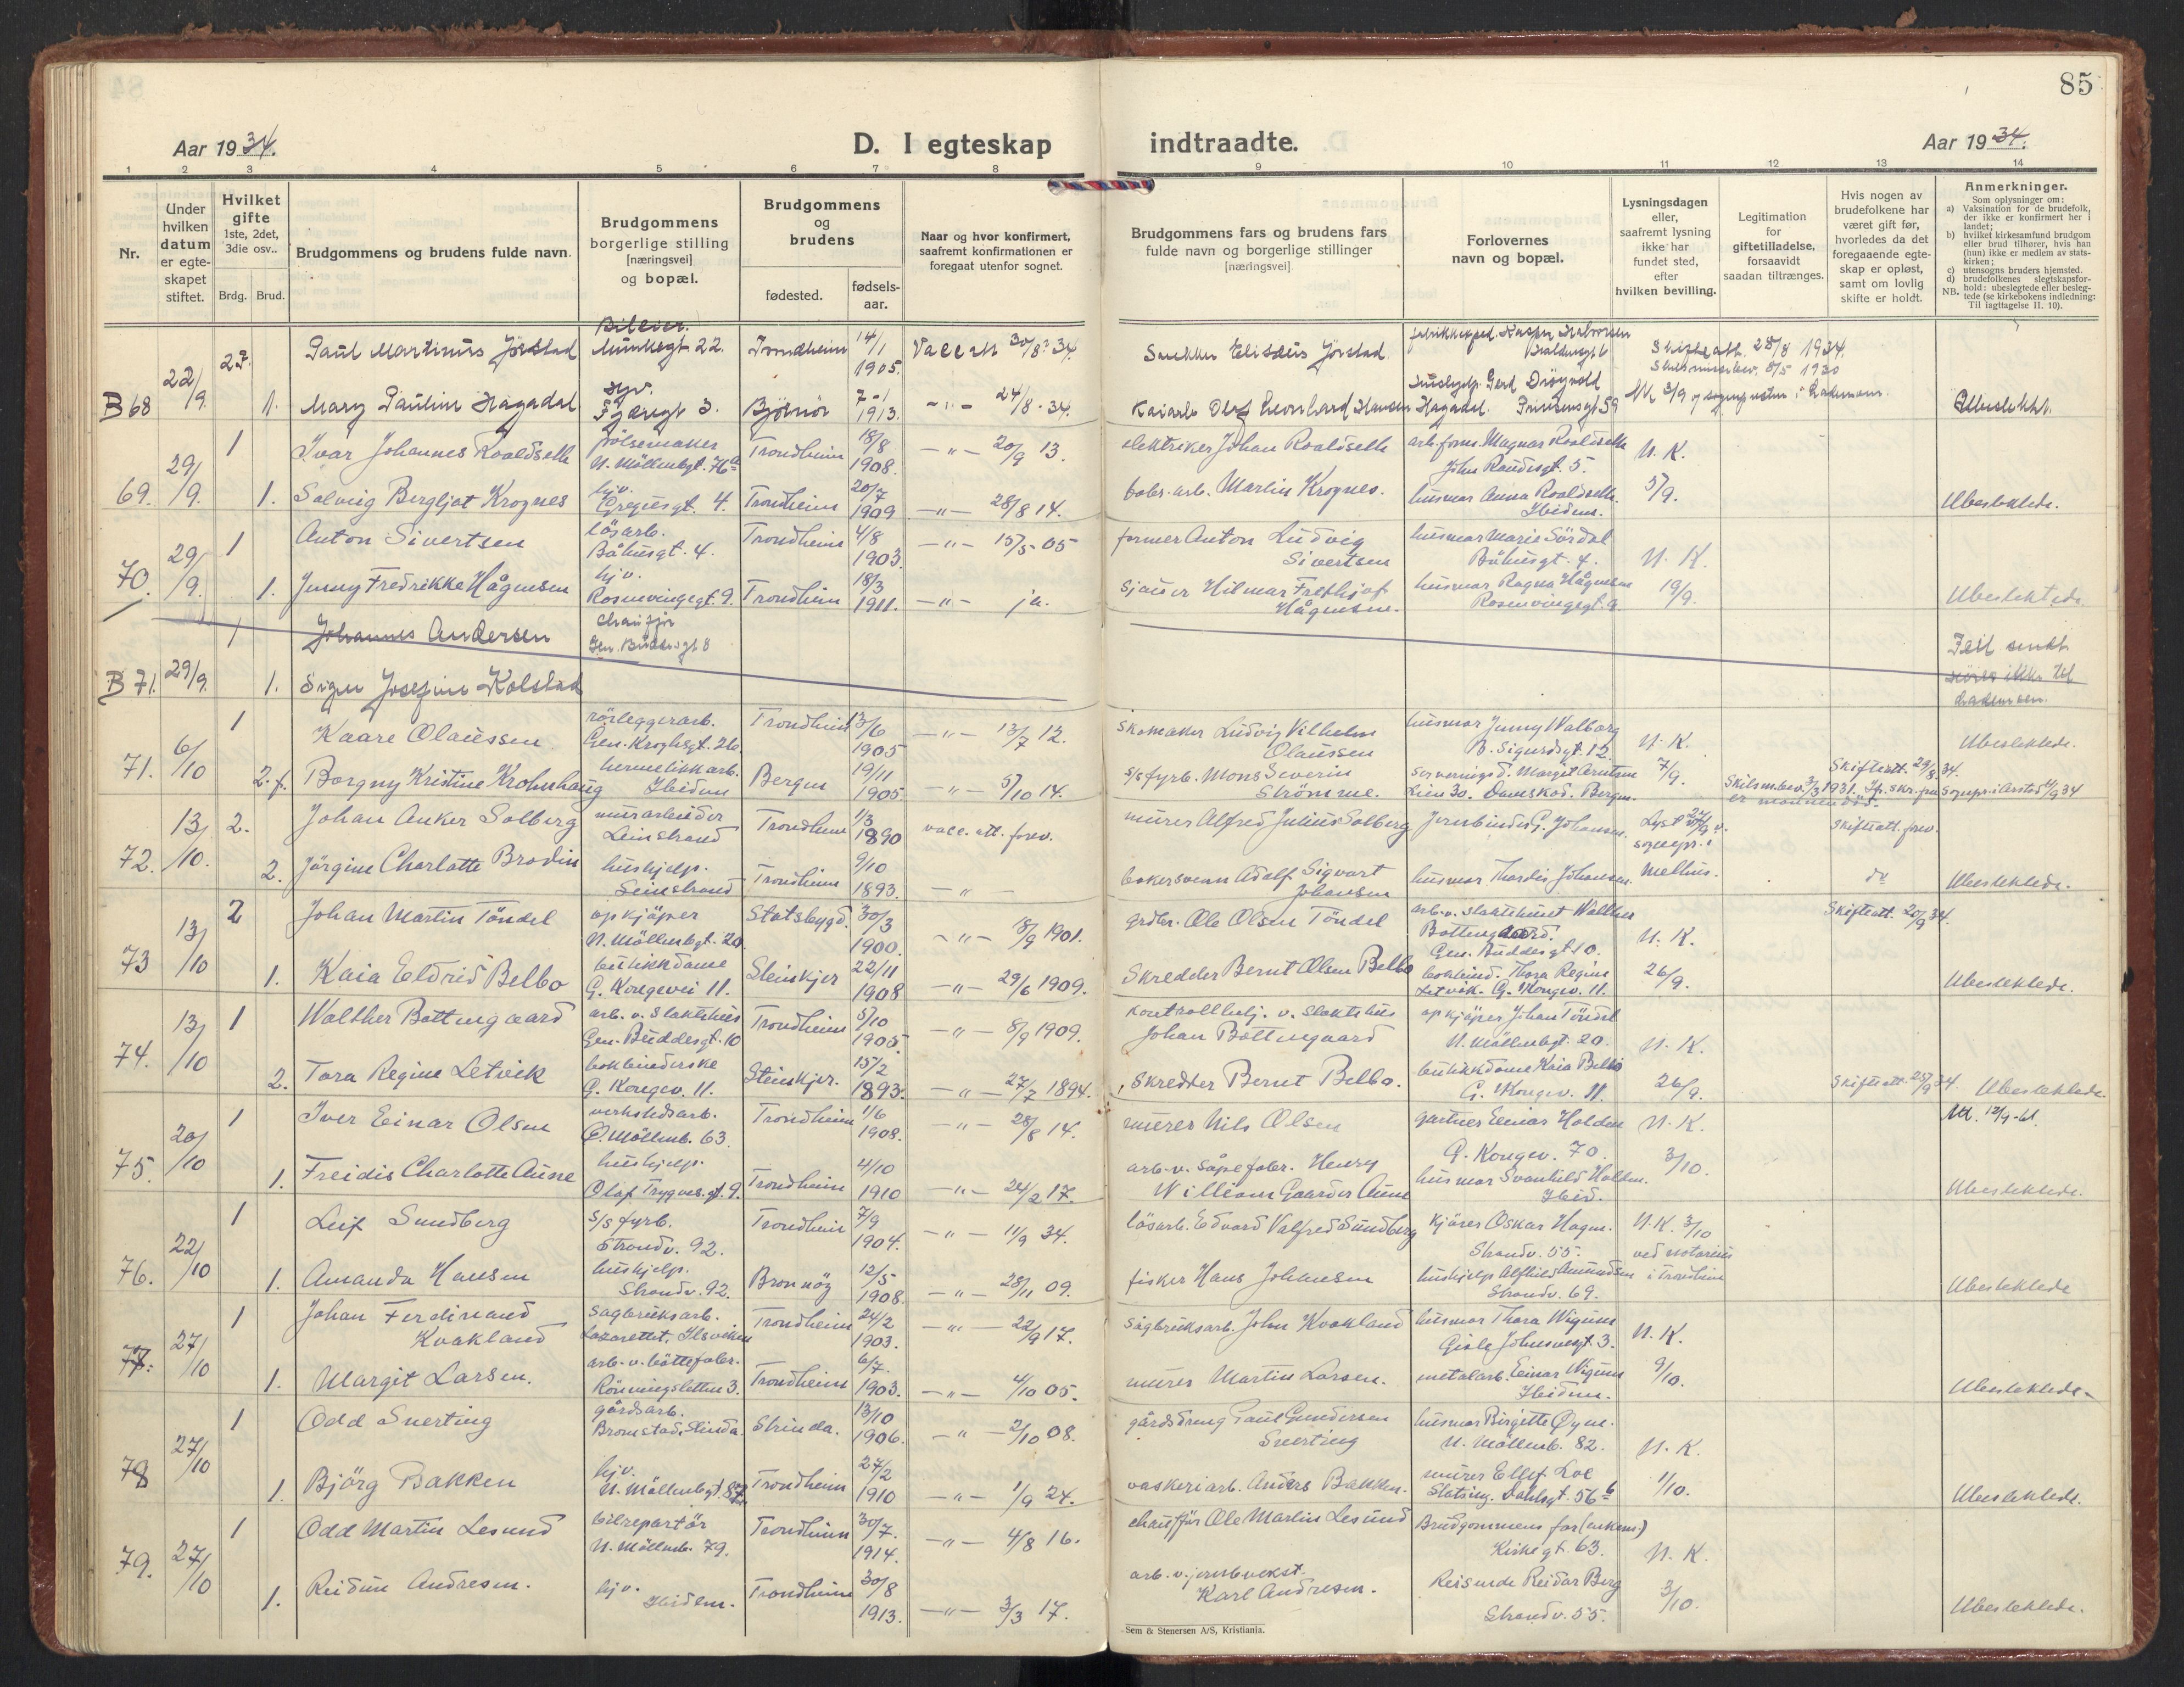 85
Aar 1934.
D. I egteskap indtraadte.
Aar 1934.
1 2 3 4 5 6 7 8 9 10 11 12 13 14
Nr.
Under hvilken datum er egteskapet stiftet.
Hvilket gifte 1ste, 2det, 3die osv..
Brdg. Brud.
Brudgommens og brudens fulde navn.
Brudgommens borgerlige stilling [næringsvei] og bopæl.
Brudgommens og brudens
fødested.
fødselsaar.
Naar og hvor konfirmert, saafremt konfirmationen er foregaat utenfor sognet.
Brudgommens fars og brudens fars fulde navn og borgerlige stillinger [næringsvei]
Forlovernes navn og bopæl.
Lysningsdagen eller, saafremt lysning ikke har fundet sted, efter hvilken bevilling.
Legitimation for giftetilladelse, forsaavidt saadan tiltrænges.
Hvis nogen av brudefolkene har været gift før, hvorledes da det foregaaende egteskap er opløst, samt om lovlig skifte er holdt.
Anmerkninger.
Som oplysninger om:
a) Vaksination for de brudefolk, der ikke er konfirmert her i landet;
b) hvilket kirkesamfund brudgom eller brud tilhører, hvis han (hun) ikke er medlem av statskirken;
c) utensogns bruders hjemsted.
d) brudefolkenes slegtskapsforhold: ubeslegtede eller beslegtede (se kirkebokens indledning: Til iagttagelse II. 10).
NB.
B 68 22/9 2. Paul Martinus Jørstad Munkegt 22. Trondheim 14/1 1905. Vacc.att 30/8 34. Snekker Elisæus Jørstad. Skifteatt. 28/8 1934.
1. Mary Pauline Hagadal Hjv. Fjæregt 3. Bjørnør 7-1 1913. -"- 24/8-34. Olaf Leonhard Hansen Hagadal. Prinsensgt 59 Ubeslekt.
69. 29/9. 1 Ivar Johannes Roaldseth pølsemaker N. Möllenbgt. 76a Trondheim 18/8 1908. -"- 20/9 13. elektriker Johan Roaldseth arb.form. Magnar Roaldseth N. K.
1. Solveig Bergljot Krognes hjv. Gregusgt. 4. Trondheim 20/7 1909 -"- 28/8 14. fabr.arb. Martin Krognes. husmor Anna Roaldseth. Ibidem. 5/9. Ubeslektede.
70. 29/9. 1 Anton Sivertsen løsarb. Båhusgt. 4. Trondheim 4/8 1903. -"- 15/5-05 former Anton Ludvig Sivertsen husmor Marie Sördal Båhusgt. 4. N. K.
1. Jenny Fredrikke Hågensen hjv. Rosenvingegt. 9. Trondheim 18/3 1911. -"- ja. sjauer Hilmar Frethjof Hågensen. husmor Ragna Hågensen Rosenvingegt. 9. 19/9. Ubeslektede
B 71. 29/9. 1 Johannes Andersen chauffør Gen. Buddesgt 8
1. Signe Josefine Kolstad Feil ikke til Lademoen.
71. 6/10 1 Kaare Olaussen rørleggerarb. Gen. Kroghsgt. 26. Trondheim 13/6 1905 -"- 13/7 12. skomaker Ludvig Vilhelm Olaussen husmor Jenny Walborg B. Sigurdsgt. 12 N. K. Ubeslektede.
2. f. Borgny Kristine Krohnhaug hermetikkarb. Ibidem Bergen 19/11 1905. -"- 5/10 14. s/s fyrb. Mons Severin Strömme. serveringsd. Margit Arntsen Lien 30. Daneskod. Bergen. 7/9. Skifteatt. 29/8 34. Skilsm.bev. 3/3 1931.
72. 13/10. 2. Johan Anker Solberg murarbeider Leinstrand Trondheim 1/3 1890 vacc. att. forev. murer Alfred Julius Solberg Jernbinder G. Johansen. Lyst 23/9 v. sognepr. i Skifteatt. forev.
2. Jörgine Charlotte Brodin hushjelp. Leinstrand Trondheim 9/10 1893. -"- bakersvenn Adolf Sigvart Johansen husmor Thordis Johansen. Melhus. do Ubeslektede.
73 13/10 2 Johan Martin Töndel opkjøper N. Möllenbgt. 20. Statsbygd. 30/3 1900. -"- 8/9 1901. grdbr. Ole Olsen Töndel arb. v. slaktehuset Walther Bottengaard. Gen. Buddesgt 10. N. K. Skifteatt. 20/9 34
1. Kaia Eldrid Belbo butikkdame G. Kongevei 11. Steinkjer 22/11 1908 -"- 29/6 1909. Skredder Bernt Olsen Belbo bokbind. Thora Regine Letvik. G. Kongev. 11. 26/9. Ubeslektede.
74. 13/10 1 Walther Bottengaard arb. v. slaktehus Gen. Buddesgt. 10 Trondheim 5/10 1905 -"- 8/9 1909. kontrollhj. v. slaktehus Johan Bottengaard opkjøper Johan Töndel N. Möllenbgt. 20. N. K.
2. Tora Regine Letvik bokbinderske G. Kongev. 11. Steinkjer. 15/2 1893. -"- 27/7 1894. Skredder Bernt Belbo. butikkdame Kaia Belbo G. Kongev. 11. 26/9. Skifteatt. 25/9 34. Ubeslektede.
75. 20/10 1 Iver Einar Olsen verkstedsarb. Ö. Möllenb. 63. Trondheim 1/6 1908. -"- 28/8 14. murer Nils Olsen gartner Einar Holden G. Kongev. 70. N. K. Utl. 12/9-61.
1. Freidis Charlotte Aune hushjelp. Olaf Trygves. gt. 9. Trondheim 4/10 1910 -"- 24/2 17. arb. v. såpefabr. Henry William Gaarder Aune husmor Svanhild Holden. Ibid. 3/10. Ubeslektede.
76. 22/10 1 Leif Sundberg s/s fyrb. Strandv. 92. Trondheim 7/9 1904. -"- 11/9 34. løsarb. Edvard Valfred Sundberg kjører Oskar Hagen. Strandv. 55. N. K. 3/10 ved notarius
1. Amanda Hansen hushjelp. Strandv. 92. Bronnøy 12/5 1908. -"- 28/11 09. fisker Hans Johansen hushjelp Alfhild Amundsen Strandv. 69. i Trondheim Ubeslektede
77. 27/10 1 Johan Ferdinand Kvakland sagbruksarb. Lazarettet, Ilsviken Trondheim 24/2 1903. -"- 22/9 17. sagbruksarb. John Kvakland husmor Thora Wigum Gisle Johnsensgt. 3. N. K.
1. Margit Larsen. arb. v. bøttefabr. Rönningsletten 3. Trondheim 6/7. 1903. -"- 4/10 05. murer Martin Larsen. metalarb. Einar Wigum Ibidem. 9/10. Ubeslektede.
78 27/10 1 Odd Snerting gårdsarb. Bromstad, Strinda. Strinda. 13/10 1906. -"- 2/10 08. gårdsdreng Paul Gundersen Snerting husmor Birgitte Øyen. N. Möllenb. 82. N. K.
1. Björg Bakken hjv. N. Möllenbgt. 82. Trondheim 27/2 1910 -"- 1/9 24. vaskeriarb. Anders Bakken. murer Ellef Loe Statsing. Dahlsgt. 56b 1/10. Ubeslektede.
79. 27/10 1 Odd Martin Lesund bilrepartör N. Möllenb. 79. Trondheim 30/7. 1914. -"- 4/8 16. chauffør Ole Martin Lesund Brudgommens far Kirkegt. 63. N. K.
1. Reidun Andresen. hjv. Ibidem. Trondheim 30/8 1913. -"- 3/3 17. arb. v. jernb.vekst. Karl Andresen. Reisende Reidar Berg Strandv. 55. 3/10. Ubeslektede.
Sem & Stenersen A/S, Kristiania.